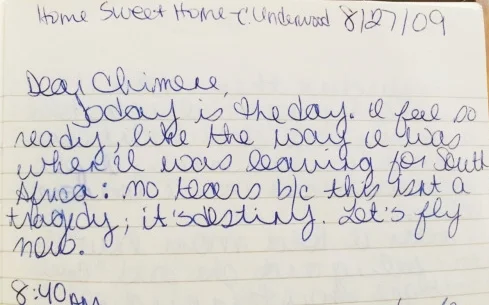 Home Sweet Home - C. Underwood 8/27/09
Dear Chimere,
Today is the day. I feel so
ready, like the way I was
when I was leaving for South
Africa: no tears b/c this isnt a
tragedy; it's destiny. Let's fly
now.
8:40AM